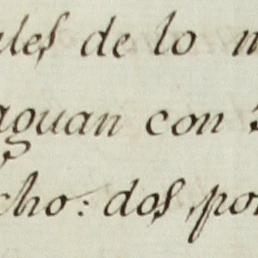 eles de lo m
aguan con
cho: dos, por